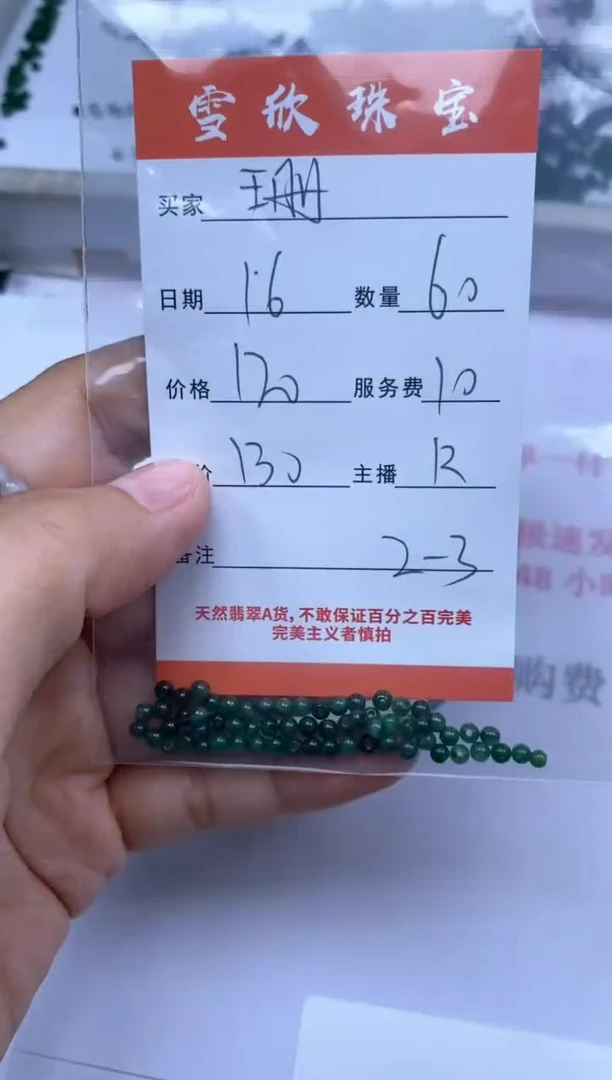 雪欣珠宝
买家 王珊
日期 1.6 数量 60
价格 120 服务费 10
价 130 主播 R
备注 2-3
天然翡翠A货,不敢保证百分之百完美
完美主义者慎拍
单一样
极速发
48 小时
购费